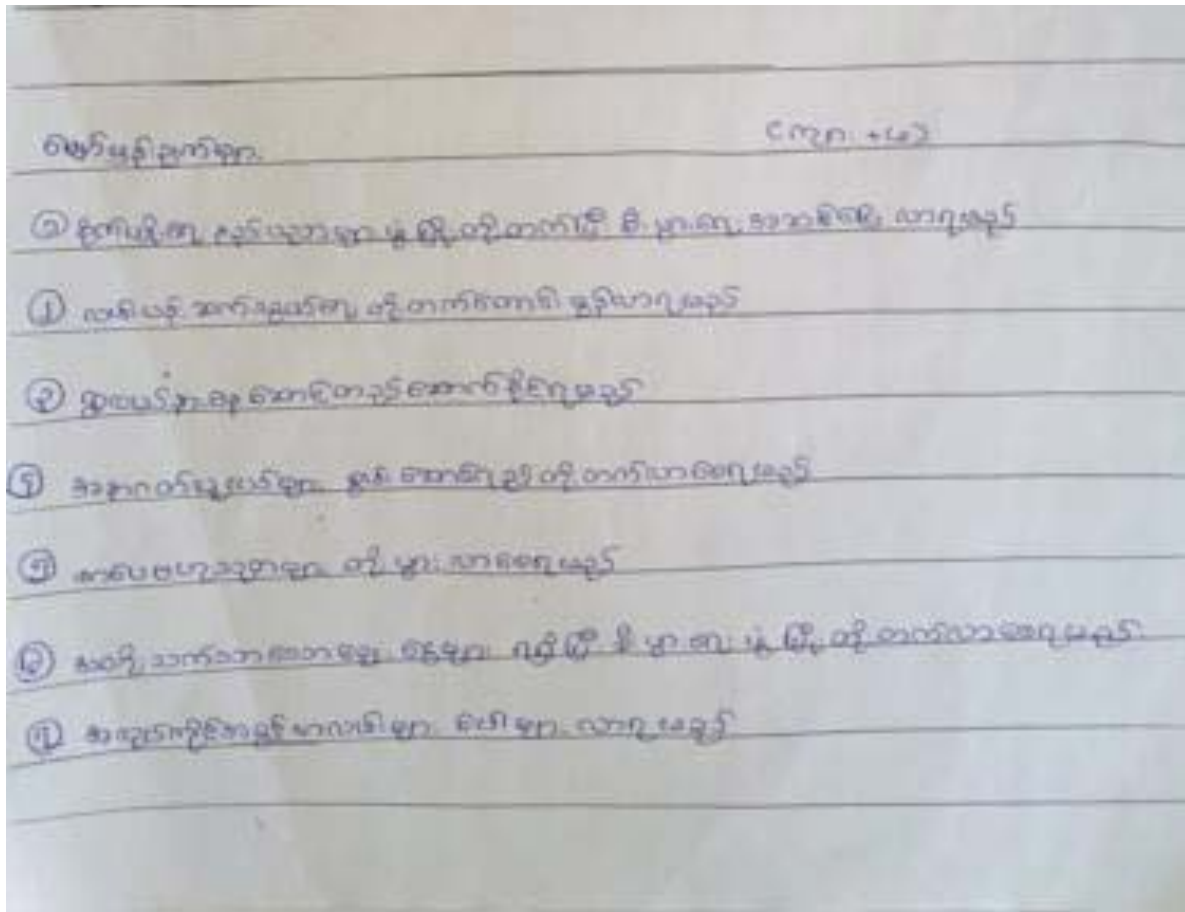 မျှော်မှန်းချက်များ (ကျား + မ)
① စိုက်ပျိုးရေး နည်းပညာများ ဖွံ့ဖြိုးတိုးတက်ပြီး စီးပွားရေး အဆင်ပြေ လာရမည်
② လမ်းပန်း ဆက်သွယ်ရေး တိုးတက်ကောင်းမွန်လာရမည်
③ ရွာတွင် စာသင်ကျောင်းတည်ဆောက်နိုင်ရမည်
④ အနာဂတ်လူငယ်များ စွမ်းဆောင်ရည် တိုးတက်လာစေရမည်
⑤ ဗဟုသုတများ တိုးပွားလာစေရမည်
⑥ အသက်မွေး များ ရရှိပြီး စီးပွားရေး ဖွံ့ဖြိုးတိုးတက်လာစေရမည်
⑦ အလုပ်အကိုင်အခွင့်အလမ်းများ ပေါများလာရမည်